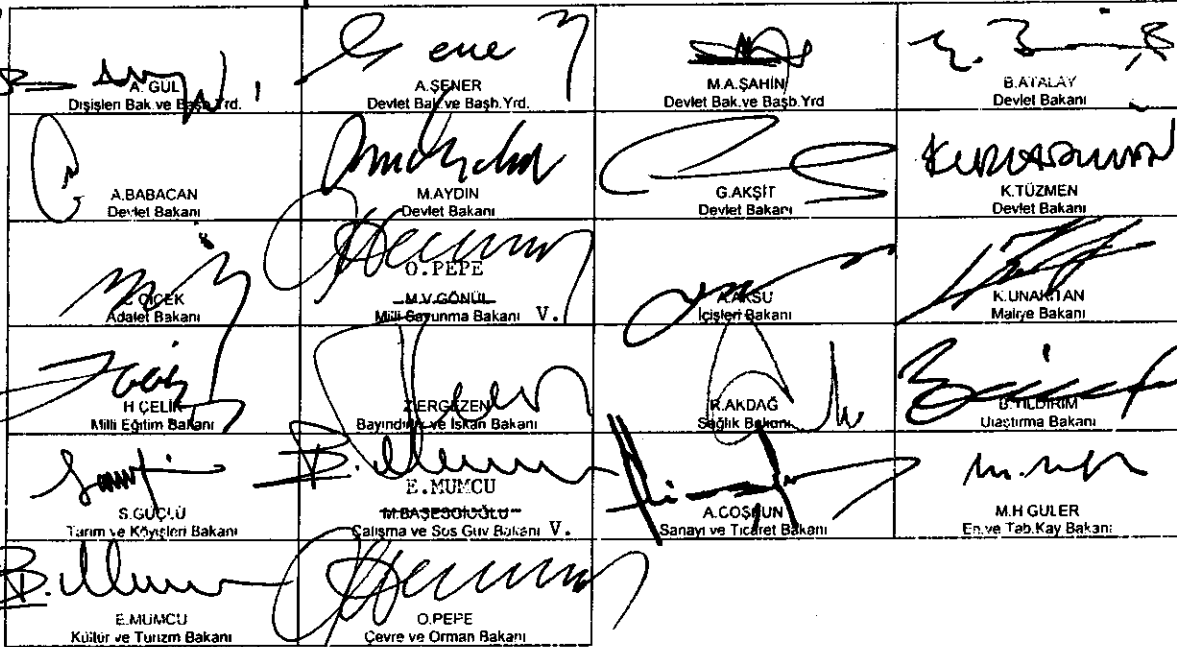 A. GÜL
Dışişleri Bak. ve Başb.Yrd.
A.ŞENER
Devlet Bak. ve Başb.Yrd.
M.A.ŞAHİN
Devlet Bak.ve Başb.Yrd
B.ATALAY
Devlet Bakanı
A.BABACAN
Devlet Bakanı
M.AYDIN
Devlet Bakanı
G.AKŞİT
Devlet Bakanı
K.TÜZMEN
Devlet Bakanı
C.ÇİÇEK
Adalet Bakanı
O.PEPE
M.V.GÖNÜL
Milli Savunma Bakanı V.
A.AKSU
İçişleri Bakanı
K.UNAKITAN
Maliye Bakanı
H ÇELİK
Milli Eğitim Bakanı
Z.ERGEZEN
Bayındırlık ve İskan Bakanı
R.AKDAĞ
Sağlık Bakanı
B.YILDIRIM
Ulaştırma Bakanı
S.GÜÇLÜ
Tarım ve Köyişleri Bakanı
E.MUMCU
M.BAŞESGİOĞLU
Çalışma ve Sos Güv Bakanı V.
A.COŞKUN
Sanayi ve Ticaret Bakanı
M.H GÜLER
En.ve Tab.Kay Bakanı
E.MUMCU
Kültür ve Turizm Bakanı
O.PEPE
Çevre ve Orman Bakanı